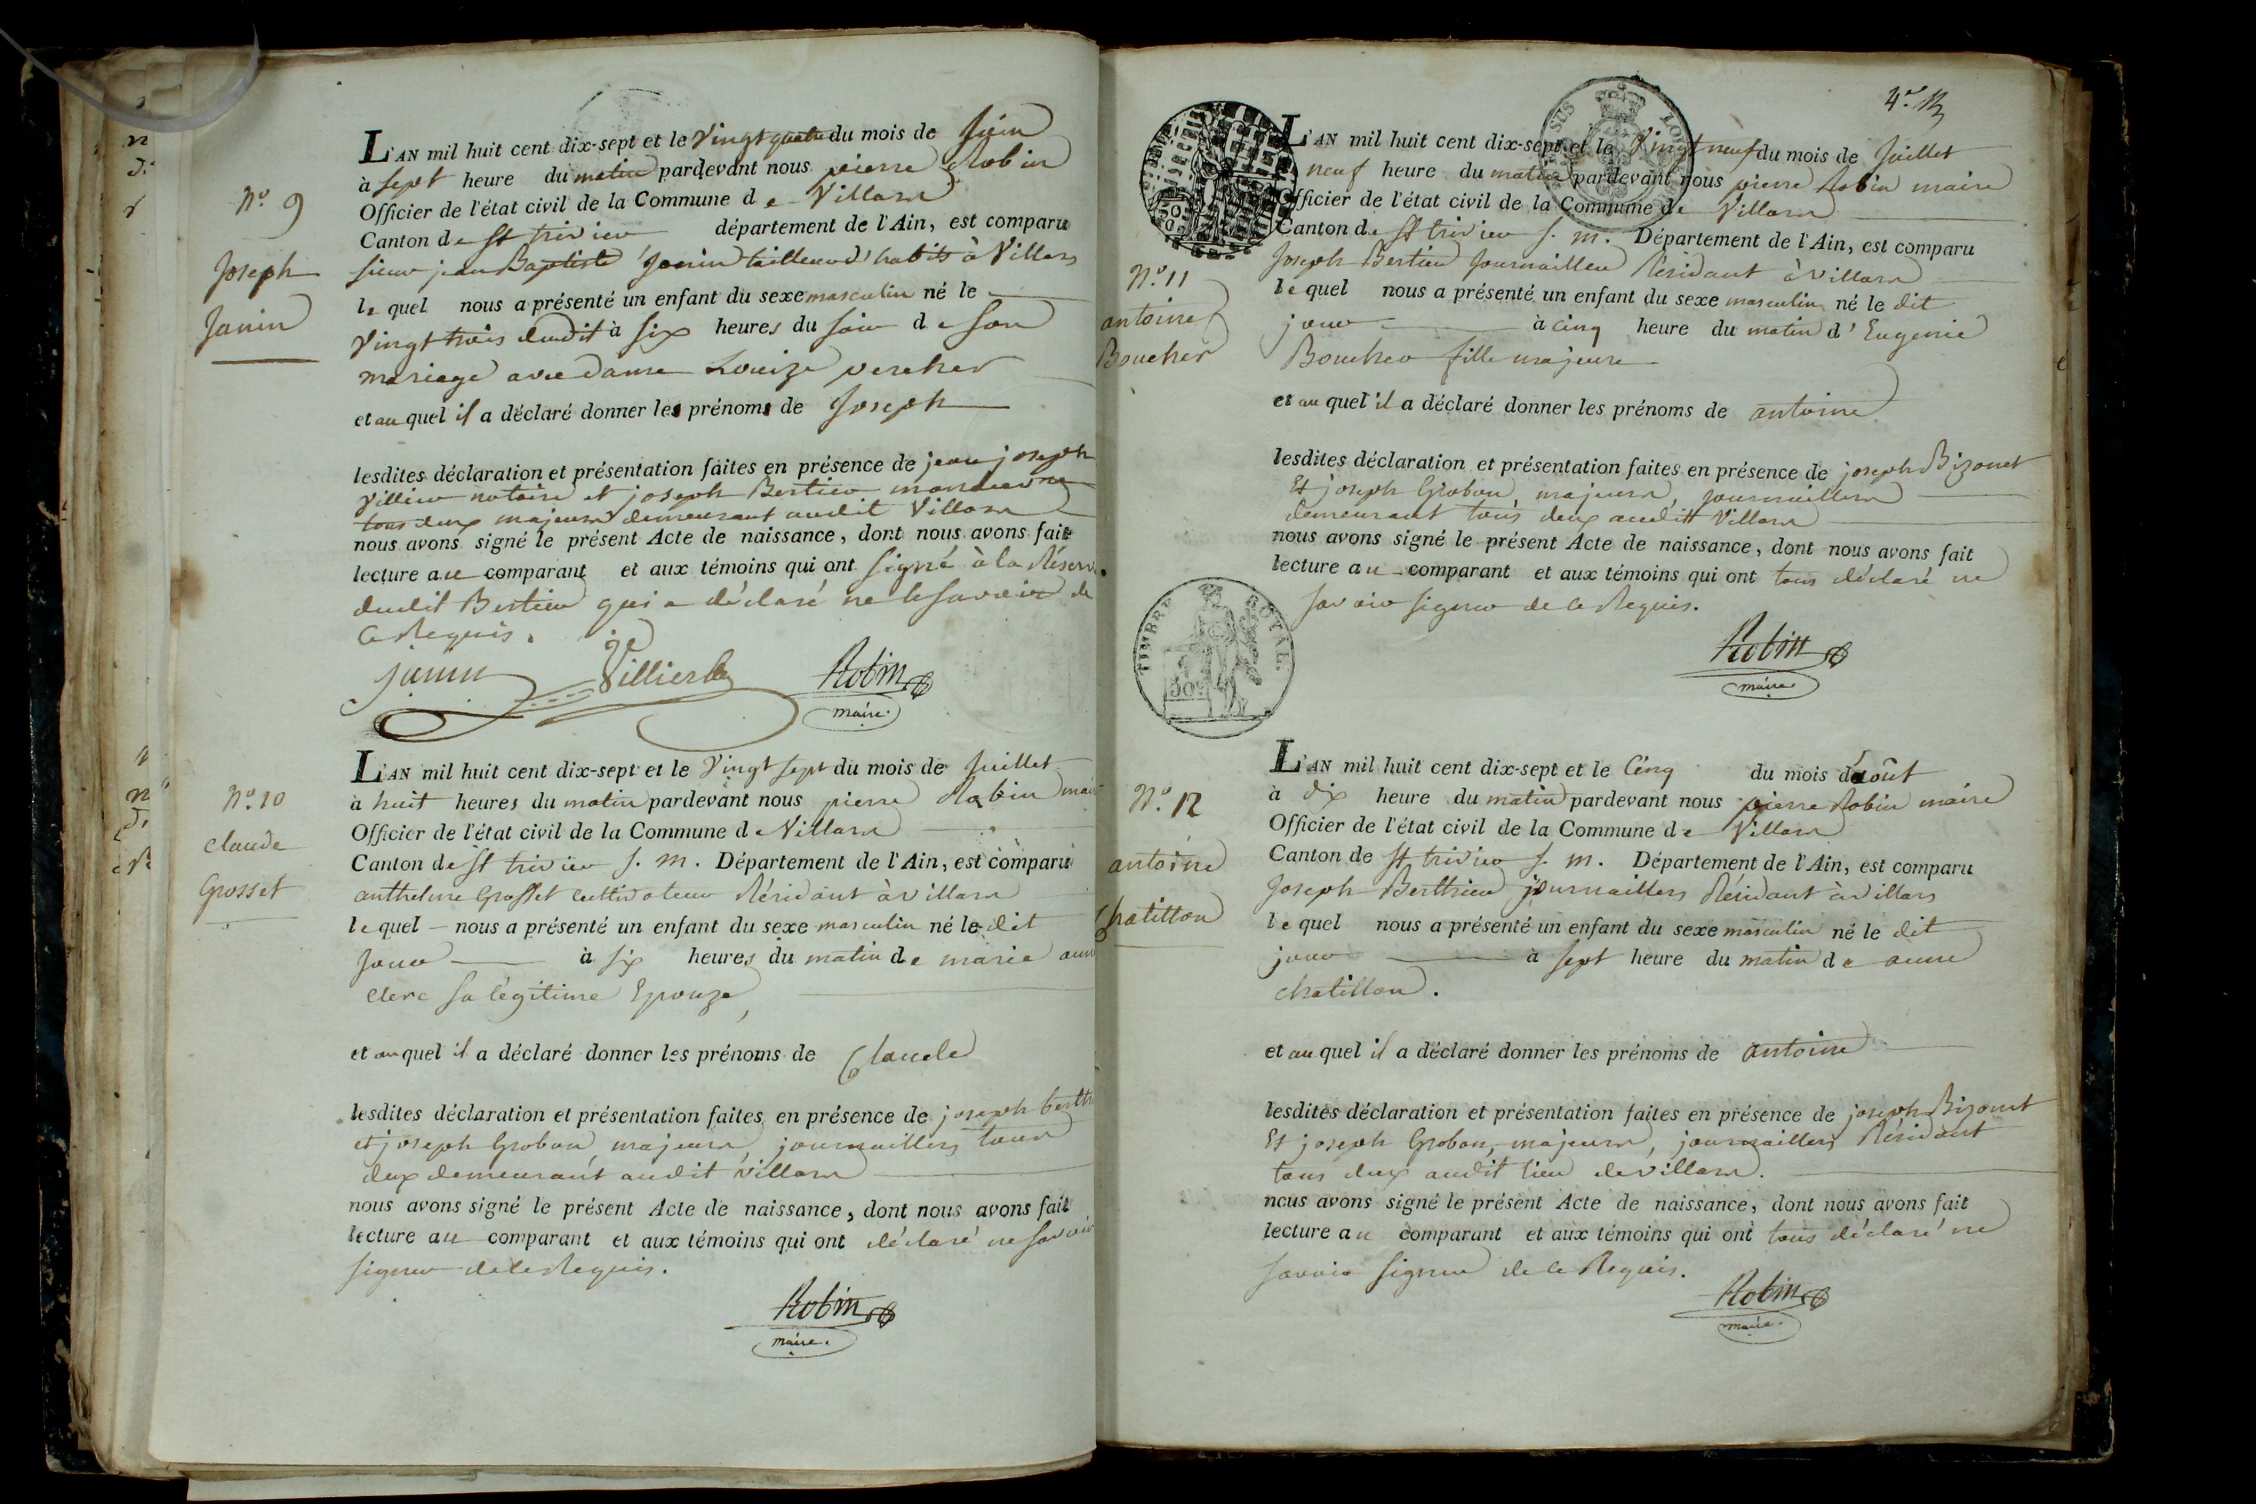 N.o 9
Joseph
Janin
L'AN mil huit cent dix-sept et le Vingt quatre du mois de Juin
à Sept heure du matin pardevant nous pierre Robin
Officier de l'état civil de la Commune de Villars
Canton de St trivier département de l'Ain, est comparu
sieur jean Baptiste Janin tailleur d'habits à Villars
lequel nous a présenté un enfant du sexe masculin né le
Vingt trois dudit à Six heures du soir de son
mariage avec dame Louize vercher
et auquel il a déclaré donner les prénoms de Joseph
lesdites déclaration et présentation faites en présence de jean joseph
Villier notaire et joseph Bertier
tous deux majeurs demeurant audit Villars
nous avons signé le présent Acte de naissance, dont nous avons fait
lecture au comparant et aux témoins qui ont signé à la Réserve
dudit Bertier qui a déclaré ne le savoir de
ce Requis.
janin Villier Robin
maire.
N.o 10
claude
Grosset
L'AN mil huit cent dix-sept et le Vingt sept du mois de Juillet
à huit heures du matin pardevant nous pierre Robin maire
Officier de l'état civil de la Commune de Villars
Canton de St trivier S. M. Département de l'Ain, est comparu
anthelme Grosset cultivateur Résidant à villars
lequel nous a présenté un enfant du sexe masculin né le dit
Jour à Six heures du matin de marie anne
clerc sa légitime Epouze,
et auquel il a déclaré donner les prénoms de Claude
lesdites déclaration et présentation faites en présence de joseph berth
et joseph Grobon, majeurs, journaillers tous
deux demeurant audit Villars
nous avons signé le présent Acte de naissance, dont nous avons fait
lecture au comparant et aux témoins qui ont déclaré ne savoir
signer de ce Requis.
Robin
maire.
4.e
TIMBRE ROYAL.
N.o 11
antoine
Boucher
L'AN mil huit cent dix-sept et le Vingt neuf du mois de Juillet
neuf heure du matin pardevant nous pierre Robin maire
Officier de l'état civil de la Commune de Villars
Canton de St trivier S. M. Département de l'Ain, est comparu
Joseph Bertier Journaillier Résidant à villars
lequel nous a présenté un enfant du sexe masculin né le dit
jour à cinq heure du matin d'Eugenie
Boucher fille majeure
et auquel il a déclaré donner les prénoms de antoine
lesdites déclaration et présentation faites en présence de joseph Bizouet
Et joseph Grobon, majeurs, journaillers
demeurant tous deux audit Villars
nous avons signé le présent Acte de naissance, dont nous avons fait
lecture au comparant et aux témoins qui ont tous déclaré ne
savoir signer de ce Requis.
Robin
maire
N.o 12
antoine
Chatillon
L'AN mil huit cent dix-sept et le Cinq du mois d'août
à dix heure du matin pardevant nous pierre Robin maire
Officier de l'état civil de la Commune de Villars
Canton de St trivier S. M. Département de l'Ain, est comparu
Joseph Berthier journaillers Résidant à villars
lequel nous a présenté un enfant du sexe masculin né le dit
jour à sept heure du matin de anne
chatillon.
et auquel il a déclaré donner les prénoms de antoine
lesdites déclaration et présentation faites en présence de joseph Bizouet
Et joseph Grobon, majeurs, journaillers Résidant
tous deux audit lieu de villars.
nous avons signé le présent Acte de naissance, dont nous avons fait
lecture au comparant et aux témoins qui ont tous déclaré ne
savoir signer de ce Requis.
Robin
maire.